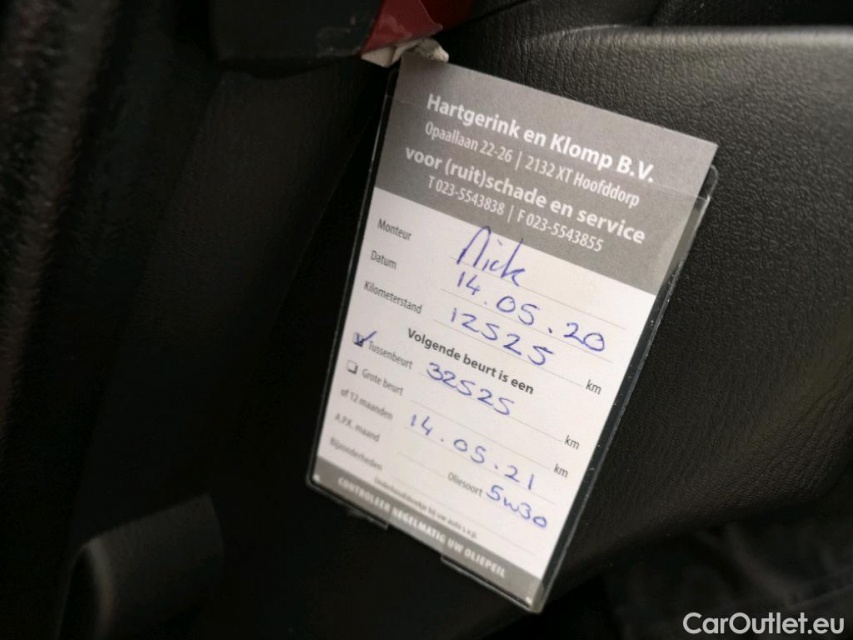 Hartgerink en Klomp B.V.
Opaallaan 22-26 | 2132 XT Hoofddorp
voor (ruit)schade en service
T 023-5543838 | F 023-5543855
Monteur Nick
Datum 14.05.20
Kilometerstand 12525 km
Volgende beurt is een
Tussenbeurt 32525 km
Grote beurt km
of 12 maanden 14.05.21
A.P.K. maand
Bijzonderheden Oliesoort 5W30
Onderhoudsboekje bij uw auto s.v.p.
CONTROLEER REGELMATIG UW OLIEPEIL
CarOutlet.eu